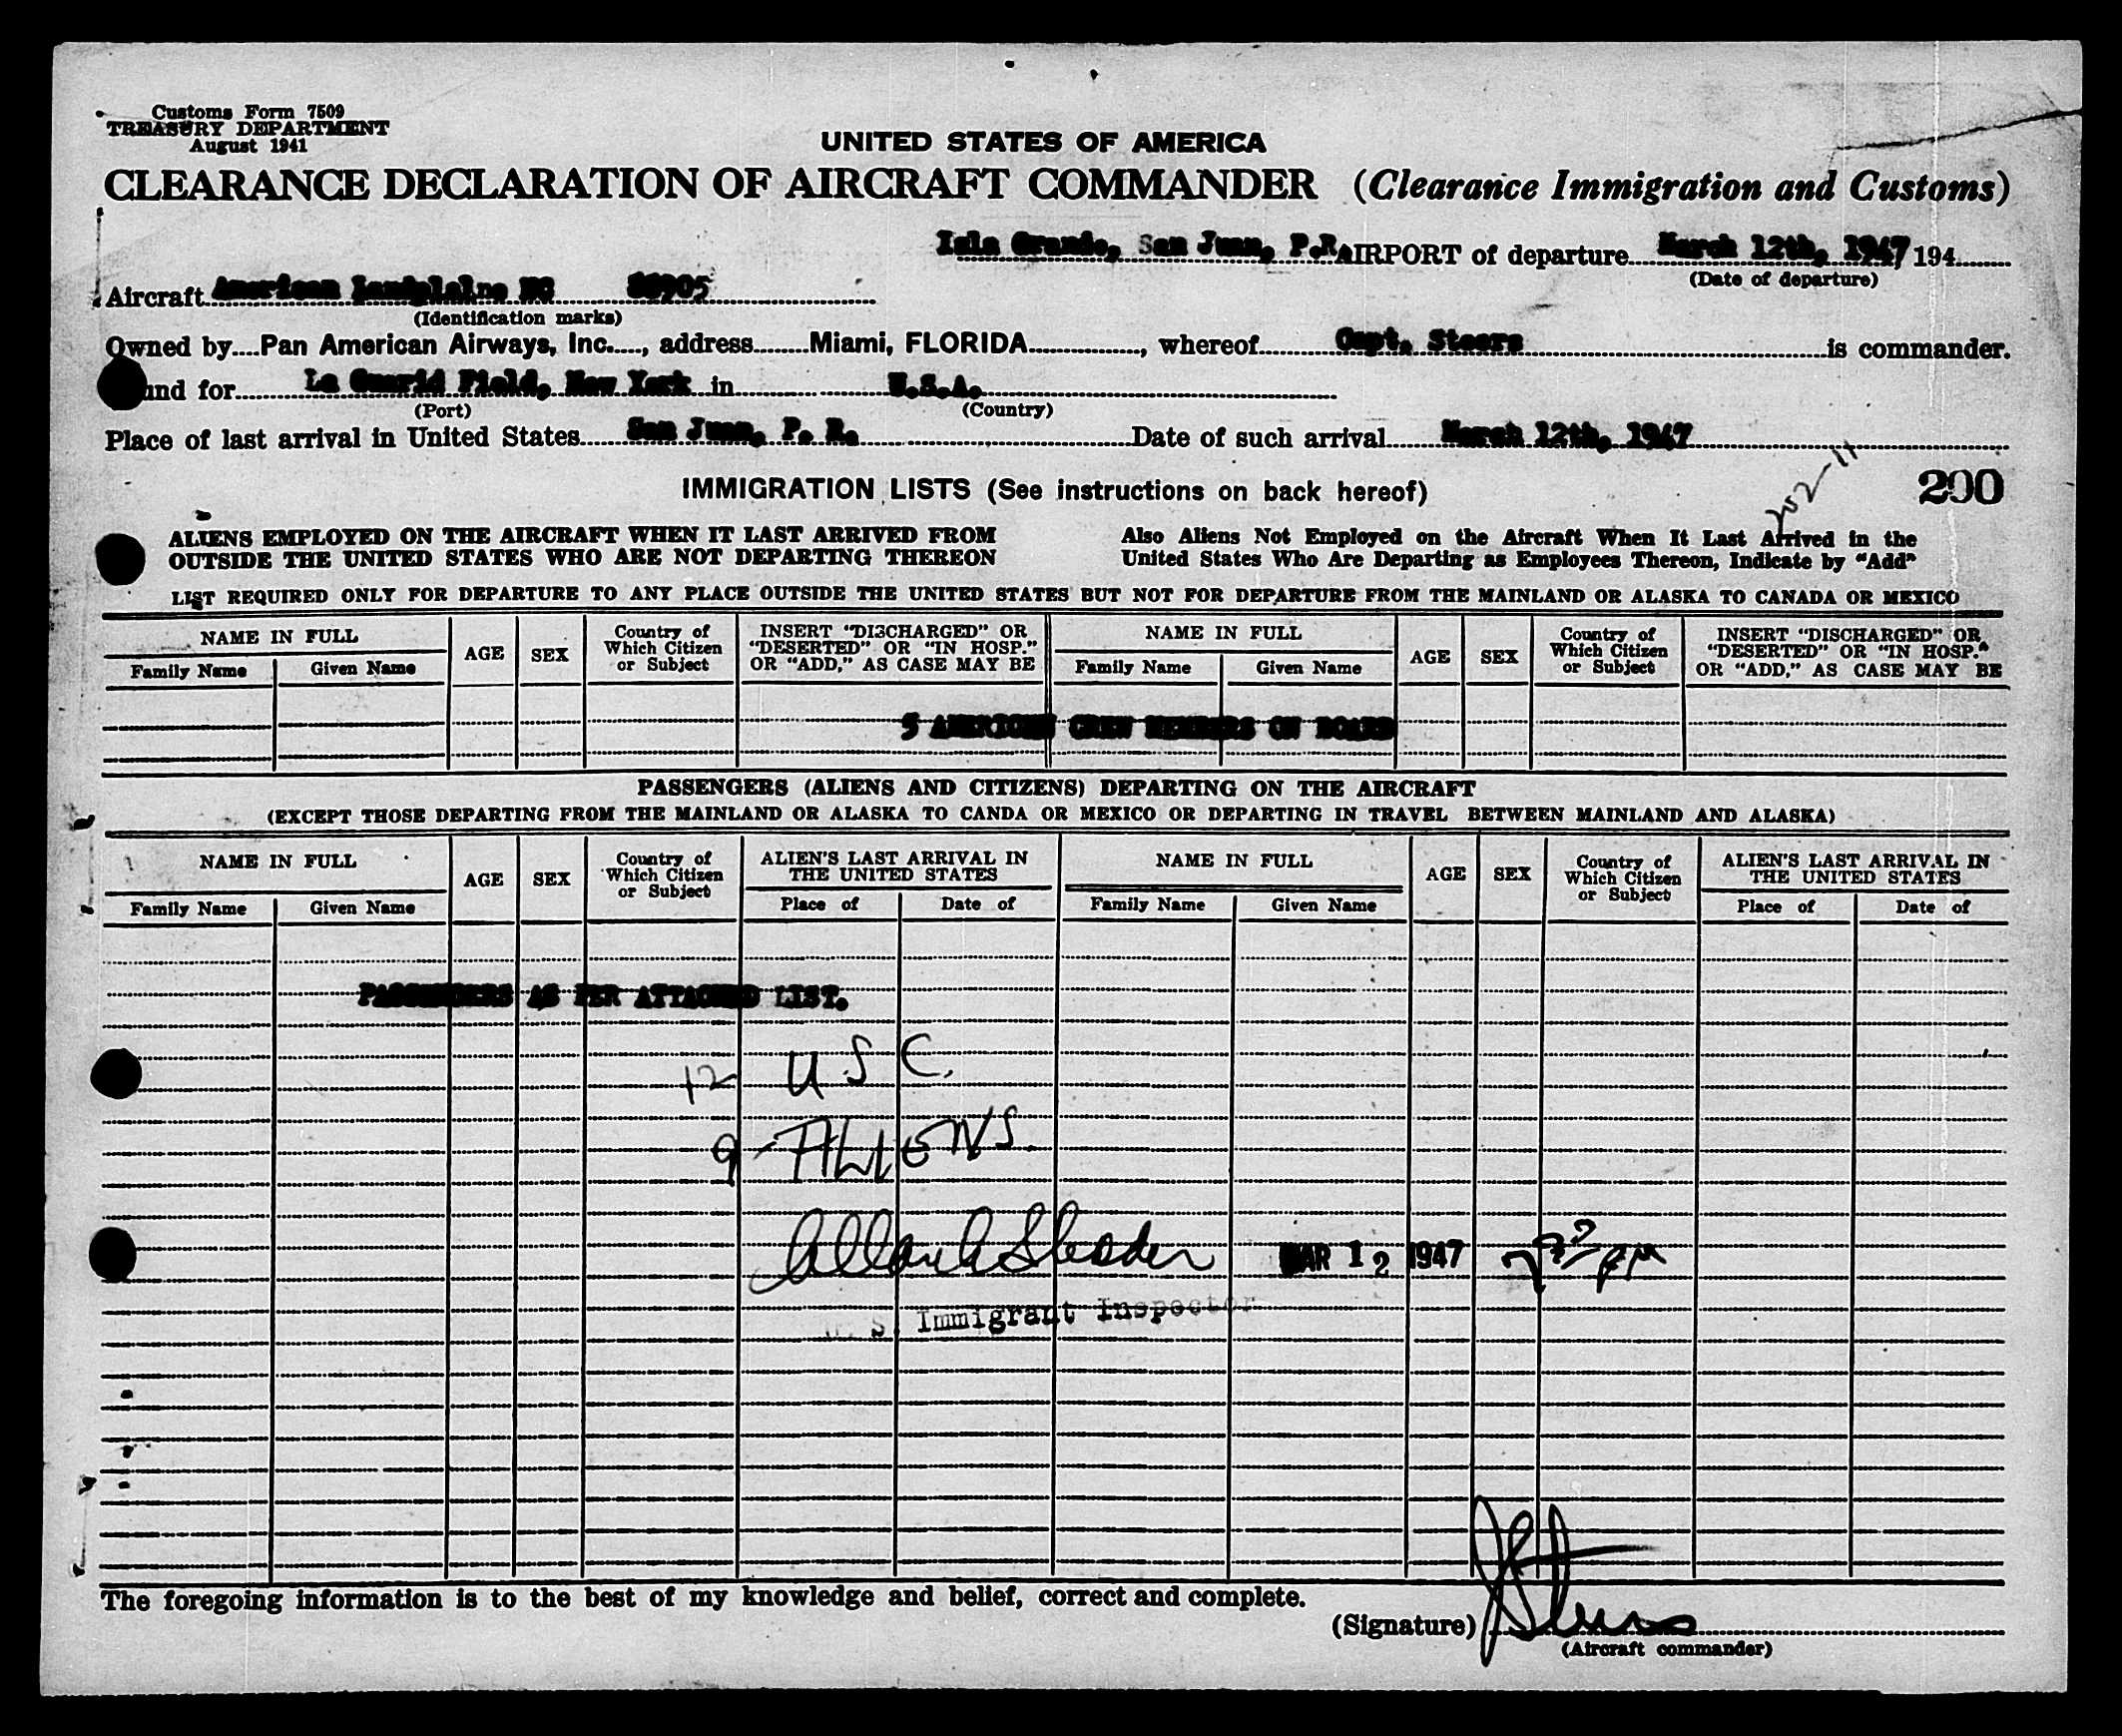 Customs Form 7509
TREASURY DEPARTMENT
August 1941
UNITED STATES OF AMERICA
CLEARANCE DECLARATION OF AIRCRAFT COMMANDER (Clearance Immigration and Customs)
Isla Grande, San Juan, P.R. AIRPORT of departure March 12th, 1947, 194
(Date of departure)
Aircraft American Landplalne NC 88905
(Identification marks)
Owned by Pan American Airways, Inc., address Miami, FLORIDA, whereof Capt. Steers is commander.
und for La Guarid Field, New York in U.S.A.
(Port) (Country)
Place of last arrival in United States San Juan, P. R. Date of such arrival March 12th, 1947
202-11
IMMIGRATION LISTS (See instructions on back hereof) 200
ALIENS EMPLOYED ON THE AIRCRAFT WHEN IT LAST ARRIVED FROM
OUTSIDE THE UNITED STATES WHO ARE NOT DEPARTING THEREON
Also Aliens Not Employed on the Aircraft When It Last Arrived in the
United States Who Are Departing as Employees Thereon, Indicate by "Add"
LIST REQUIRED ONLY FOR DEPARTURE TO ANY PLACE OUTSIDE THE UNITED STATES BUT NOT FOR DEPARTURE FROM THE MAINLAND OR ALASKA TO CANADA OR MEXICO
NAME IN FULL
Family Name Given Name
AGE
SEX
Country of
Which Citizen
or Subject
INSERT "DISCHARGED" OR
"DESERTED" OR "IN HOSP."
OR "ADD," AS CASE MAY BE
NAME IN FULL
Family Name Given Name
AGE
SEX
Country of
Which Citizen
or Subject
INSERT "DISCHARGED" OR
"DESERTED" OR "IN HOSP."
OR "ADD," AS CASE MAY BE
5 AMERICAN CREW MEMBERS ON BOARD
PASSENGERS (ALIENS AND CITIZENS) DEPARTING ON THE AIRCRAFT
(EXCEPT THOSE DEPARTING FROM THE MAINLAND OR ALASKA TO CANDA OR MEXICO OR DEPARTING IN TRAVEL BETWEEN MAINLAND AND ALASKA)
NAME IN FULL
Family Name Given Name
AGE
SEX
Country of
Which Citizen
or Subject
ALIEN'S LAST ARRIVAL IN
THE UNITED STATES
Place of Date of
NAME IN FULL
Family Name Given Name
AGE
SEX
Country of
Which Citizen
or Subject
ALIEN'S LAST ARRIVAL IN
THE UNITED STATES
Place of Date of
PASSENGERS AS PER ATTACHED LIST.
12 USC.
9 - ALIENS.
MAR 12 1947 PM
U. S. Immigrant Inspector
The foregoing information is to the best of my knowledge and belief, correct and complete.
(Signature) Steers
(Aircraft commander)